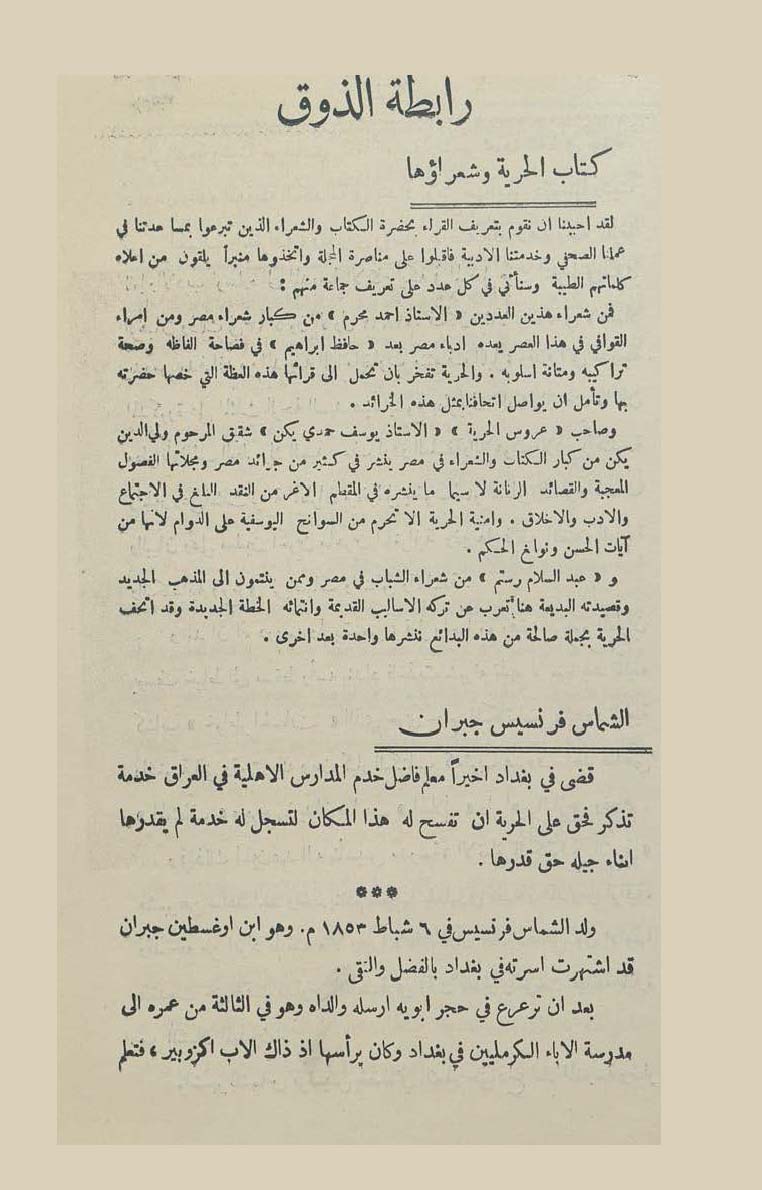 رابطة الذوق
كتاب الحرية وشعراؤها
لقد احببنا ان نقوم بتعريف القراء بحضرة الكتاب والشعراء الذين تبرعوا بمساعدتنا في
عملنا الصحفي وخدمتنا الادبية فاقبلوا على مناصرة المجلة واتخذوها منبراً يلقون من اعلاه
كلماتهم الطيبة وسنأتي في كل عدد على تعريف جماعة منهم :
فمن شعراء هذين العددين « الاستاذ احمد محرم » من كبار شعراء مصر ومن امراء
القوافي في هذا العصر يعده ادباء مصر بعد « حافظ ابراهيم » في فصاحة الفاظه وصحة
تراكيبه ومتانة اسلوبه . والحرية تفخر بان تحمل الى قرائها هذه العظة التي خصها حضرته
بها وتأمل ان يواصل اتحافنا بمثل هذه الخرائد .
وصاحب « عروس الحرية » « الاستاذ يوسف حمدي يكن » شقيق المرحوم ولي الدين
يكن من كبار الكتاب والشعراء في مصر ينشر في كثير من جرائد مصر ومجلاتها الفصول
المعجبة والقصائد الرنانة لا سيما ما ينشره في المقطم الاغر من النقد البالغ في الاجتماع
والادب والاخلاق . وامنية الحرية الا تحرم من السوانح اليوسفية على الدوام لانها من
آيات الحسن ونوابغ الحكم .
و « عبد السلام رستم » من شعراء الشباب في مصر وممن ينتمون الى المذهب الجديد
وقصيدته البديعة هنا تعرب عن تركه الاساليب القديمة وانتمائه الخطة الجديدة وقد اتحف
الحرية بجملة صالحة من هذه البدائع ننشرها واحدة بعد اخرى .
الشماس فرنسيس جبران
قضى في بغداد اخيراً معلم فاضل خدم المدارس الاهلية في العراق خدمة
تذكر فحق على الحرية ان تفسح له هذا المكان لتسجل له خدمة لم يقدرها
ابناء جيله حق قدرها .
***
ولد الشماس فرنسيس في ٦ شباط ١٨٥٣ م. وهو ابن اوغسطين جبران
قد اشتهرت اسرته في بغداد بالفضل والتقى .
بعد ان ترعرع في حجر ابويه ارسله والداه وهو في الثالثة من عمره الى
مدرسة الاباء الكرمليين في بغداد وكان يرأسها اذ ذاك الاب اكزوبير ، فتعلم